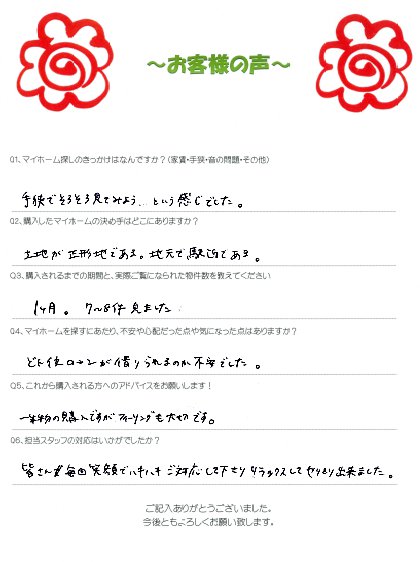 ～お客様の声～
Q1、マイホーム探しのきっかけはなんですか？（家賃・手狭・音の問題・その他）
手狭でそろそろ見てみよう…という感じでした。
Q2、購入したマイホームの決め手はどこにありますか？
土地が正形地である。地元で駅近である。
Q3、購入されるまでの期間と、実際ご覧になられた物件数を教えてください
1ヶ月。 7〜8件見ました
Q4、マイホームを探すにあたり、不安や心配だった点や気になった点はありますか？
どん位ローンが借りられるのか不安でした。
Q5、これから購入される方へのアドバイスをお願いします！
一生物の購入ですがフィーリングも大切です。
Q6、担当スタッフの対応はいかがでしたか？
皆さん毎回笑顔でハキハキご対応して下さりリラックスしてやりとり出来ました。
ご記入ありがとうございました。
今後ともよろしくお願い致します。